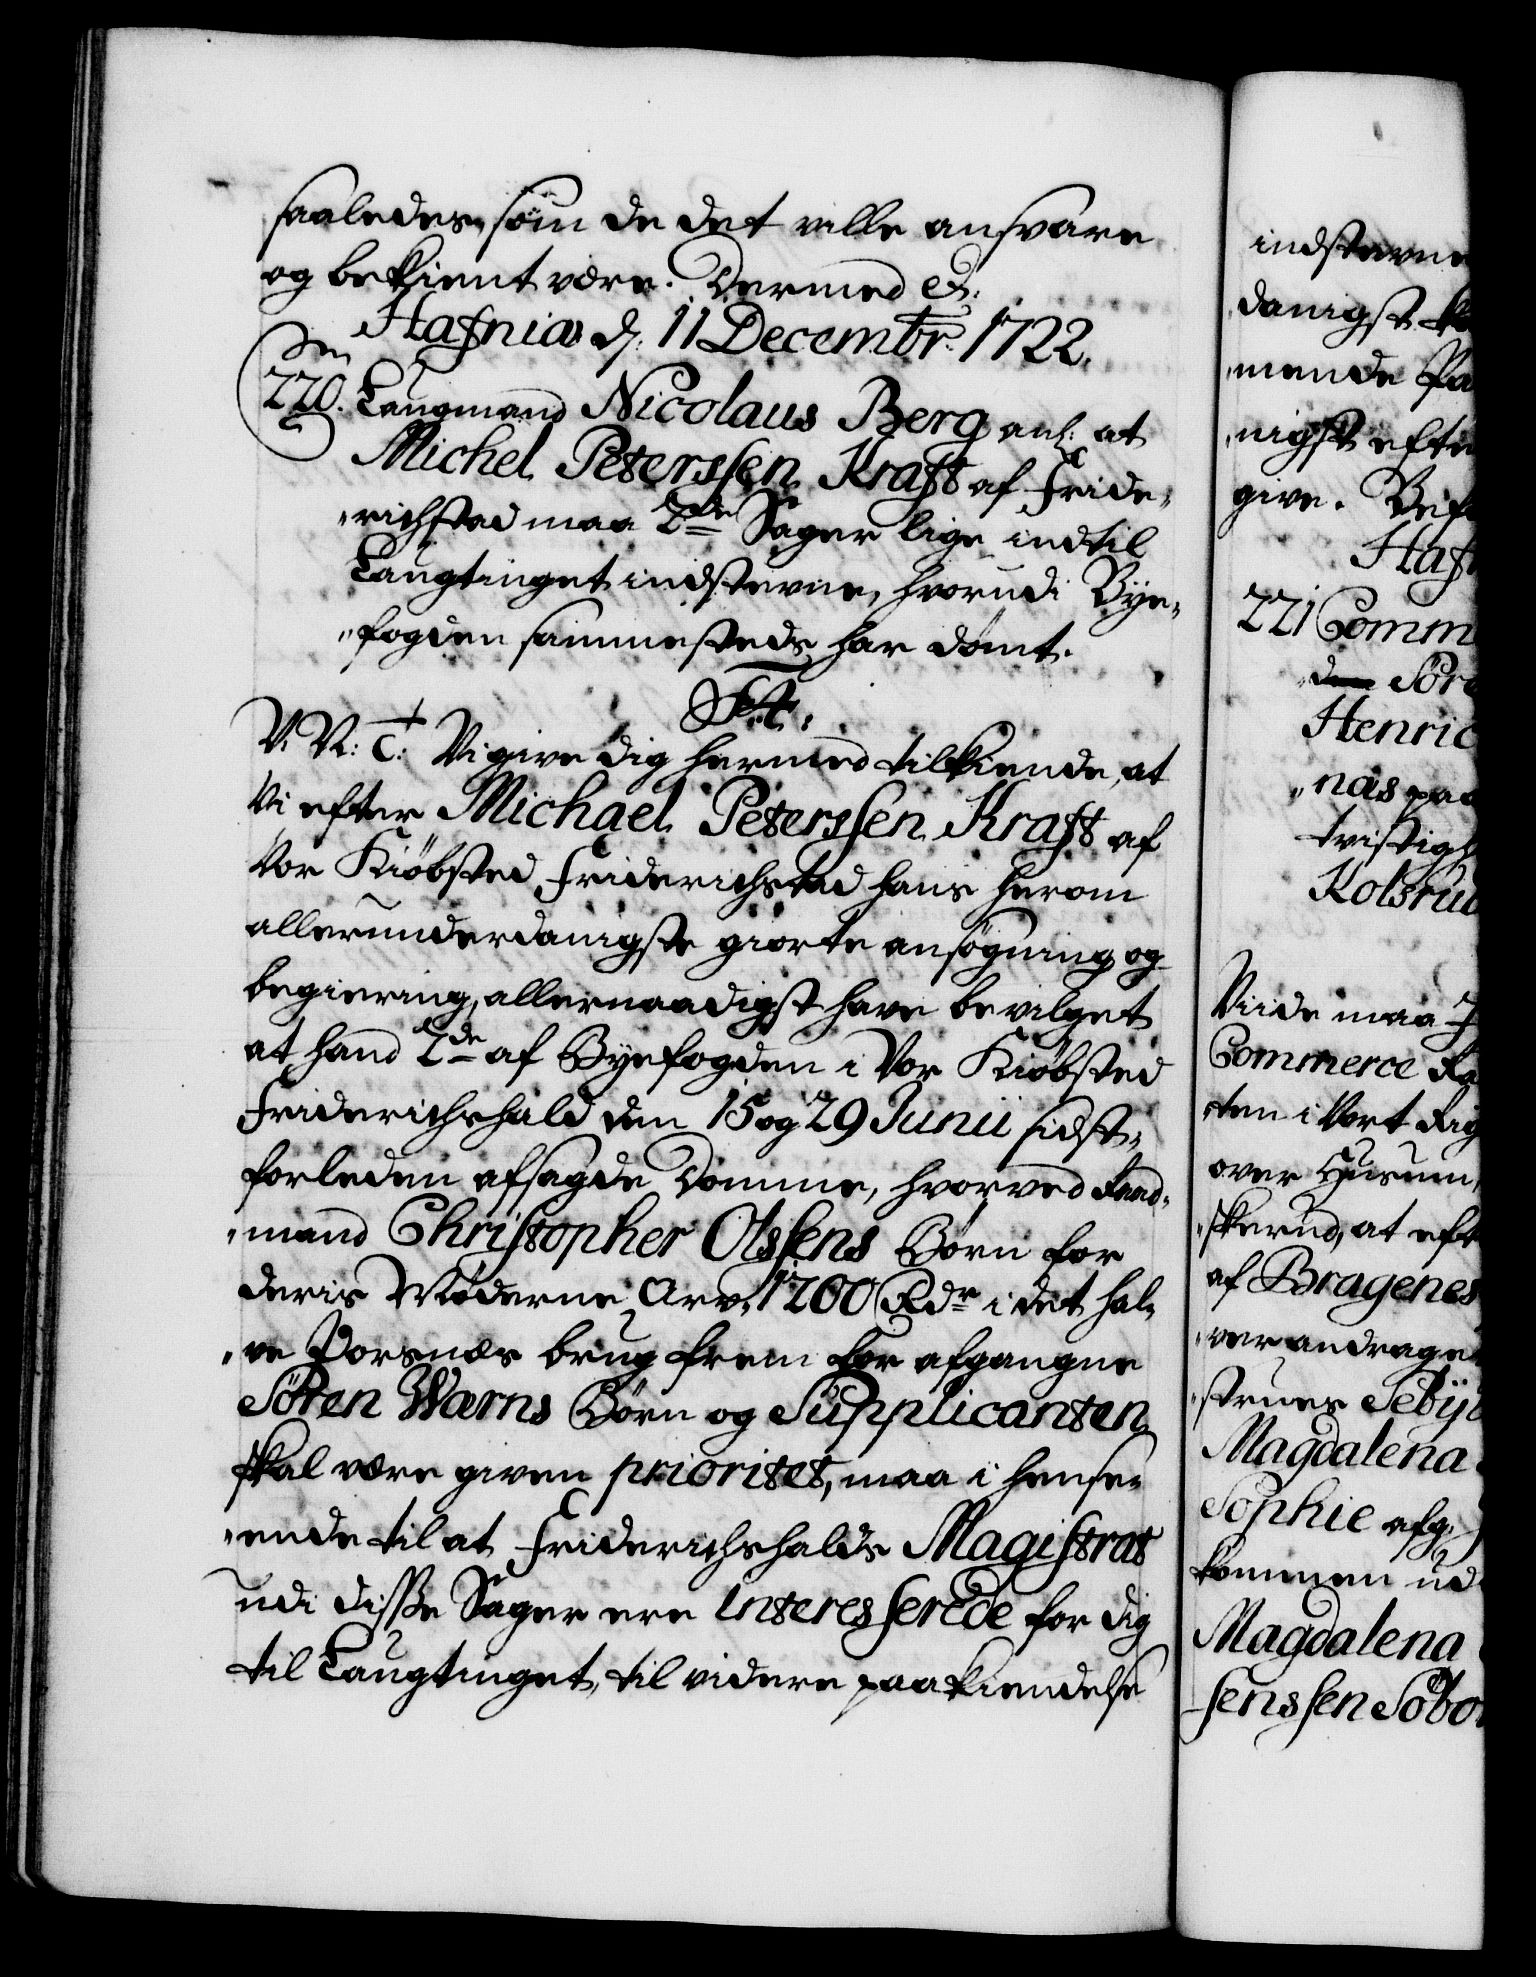 saaledes, som de det ville ansvare
og bekient være. Dermed &.
Hafniæ d. 11 Decembr. 1722.
220. Laugmand Nicolaus Berg anl: at
Michel Peterssen Kraft af Fride-
richstad maa 2de Sager lige indtil
Laugtinget indstevne, hvorudi Bye-
fogden sammesteds har dømt.
F. 4.
V. V: C: Vi give dig hermed tilkiende, at
Vi efter Michael Peterssen Kraft af
Vor Kiøbsted Friderichstad hans herom
allerunderdanigste giorte ansøgning og
begiering, allernaadigst have bevilget
at hand 2de af Byefogden i Vor Kiøbsted
Friderichshald den 15 og 29 Junii sidst-
forleden afsagde Domme, hvorved Raad-
mand Christopher Olssens Børn for
deris Møderne Arv, 1200 Rdr i det hal-
ve Vorsnæs brug frem for afgangne
Søren Wærns Børn og Supplicanten
skal være given prioritet, maa i hense-
ende til at Friderichshalds Magistrat
udi disse Sager ere interesserede for dig
til Laugtinget, til videre paakiendelse
indstevne
danigst
mende
nigst efte
give.
Haf
221 Comm
Söre
Henric
nas paa
tvistigh
Kolsrud
Viide maa
Commerce Ra
ten i Vort Rig
over Husum,
skerud, at eft
af Bragenes
ver andraget
strues Sebÿl
Magdalena
Sophie afg.
kommen ud
Magdalena
Jenssen Söbo